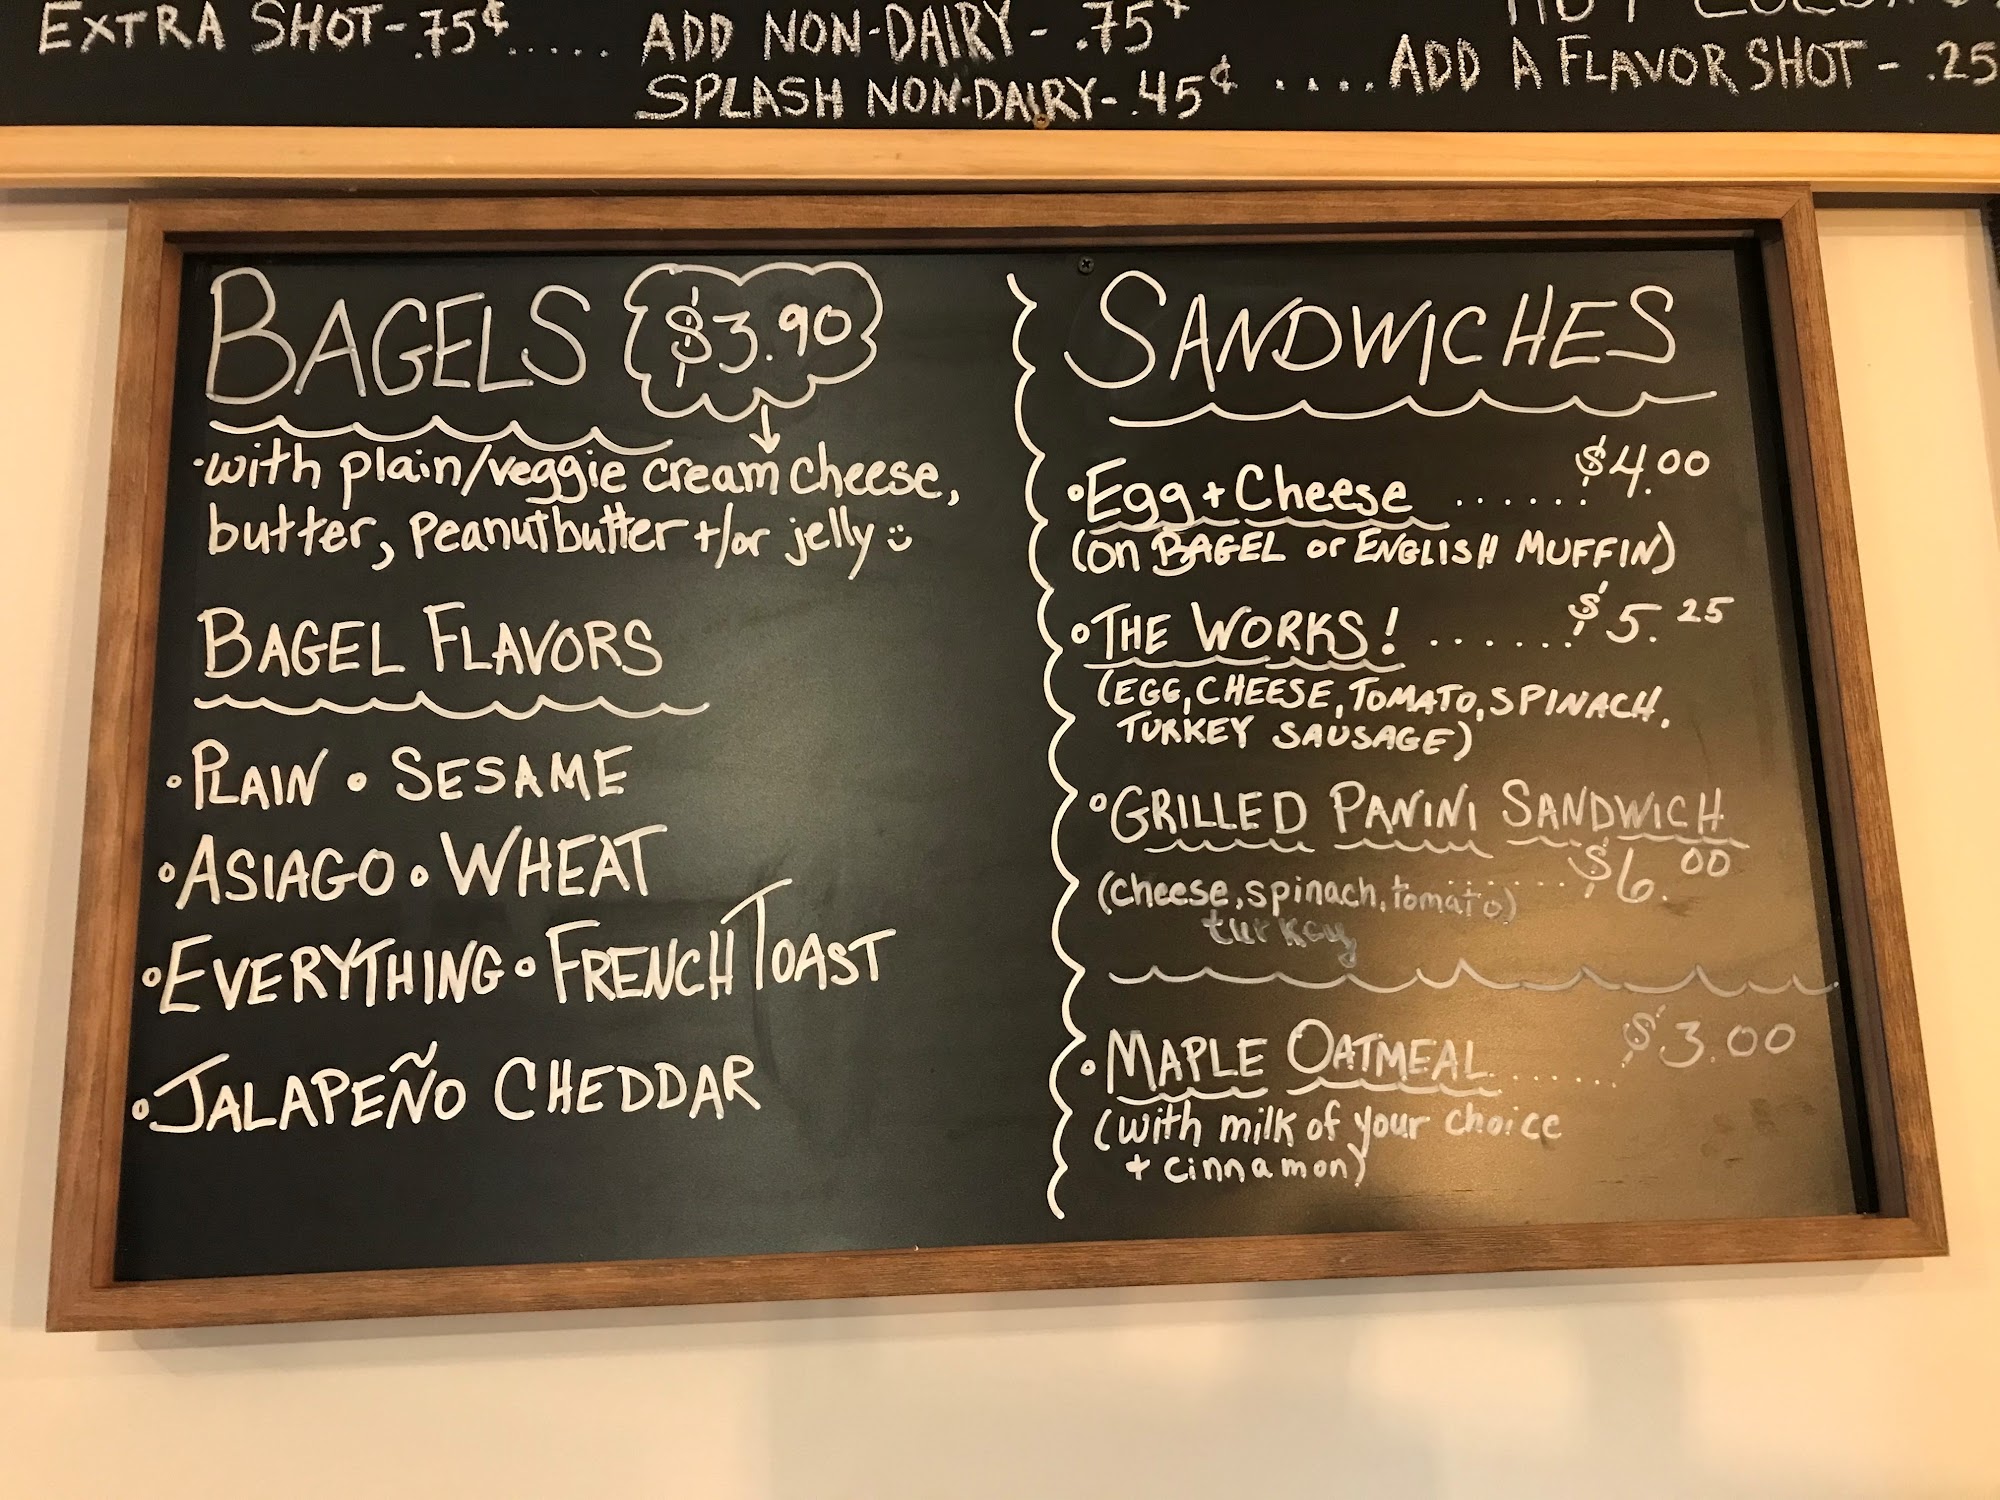 EXTRA SHOT-.75¢..... ADD NON-DAIRY - .75¢
SPLASH NON-DAIRY-.45¢ .... ADD A FLAVOR SHOT - .25
BAGELS $3.90
·with plain/veggie cream cheese,
butter, peanut butter +/or jelly
BAGEL FLAVORS
·PLAIN · SESAME
·ASIAGO · WHEAT
·EVERYTHING · FRENCH TOAST
·JALAPEÑO CHEDDAR
SANDWICHES
·Egg + Cheese ...... $4.00
(on BAGEL or ENGLISH MUFFIN)
·THE WORKS! ...... $5.25
(EGG, CHEESE, TOMATO, SPINACH,
TURKEY SAUSAGE)
·GRILLED PANINI SANDWICH
(cheese, spinach, tomato) ...... $6.00
turkey
·MAPLE OATMEAL...... $3.00
(with milk of your choice
+ cinnamon)